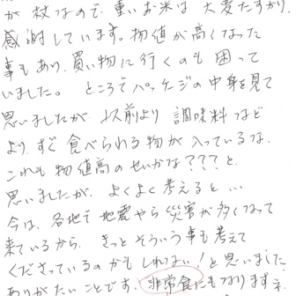 が杖なので、重いお米は大変たすかり、
感謝しています。物値が高くなった
事もあり、買い物に行くのも困って
いました。ところでパッケジの中身を見て
思いましたが、以前より調味料など
より、すぐ食べられる物が入っているな、
これも物値高のせいかな???と、
思いましたが、よくよく考えると…
今は、各地で地震やら災害が多くなって
来ているから、きっとそういう事も考えて
くださっているのかもしれない!と思いました。
ありがたいことです、非常食にもなりますネ。